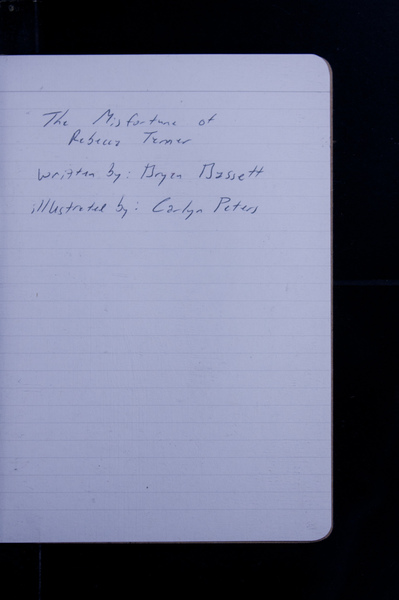 The Misfortune of
Rebecca Turner
written by: Bryan Bassett
illustrated by: Carlyn Peters